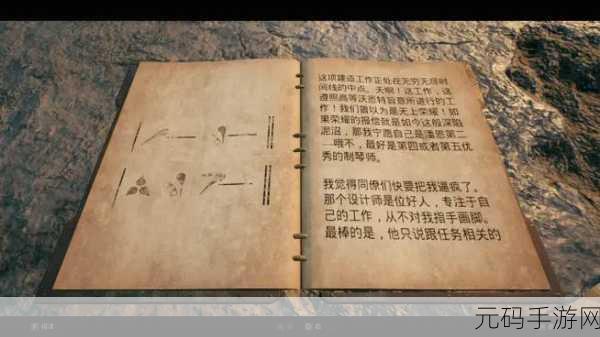 这项建造工作正处在无穷无尽时
间线的中点。天啊！这工作，这
遵照高等沃恩特旨意所进行的工
作！我们曾以为是天上荣耀！如
果荣耀的报偿就是如今这般深陷
泥沼，那我宁愿自己是潘恩第二
……哦不，最好是第四或者第五优
秀的制琴师。
我觉得同僚们快要把我逼疯了。
那个设计师是位好人，专注于自
己的工作，从不对我指手画脚。
最棒的是，他只说跟任务相关的
元码手游网